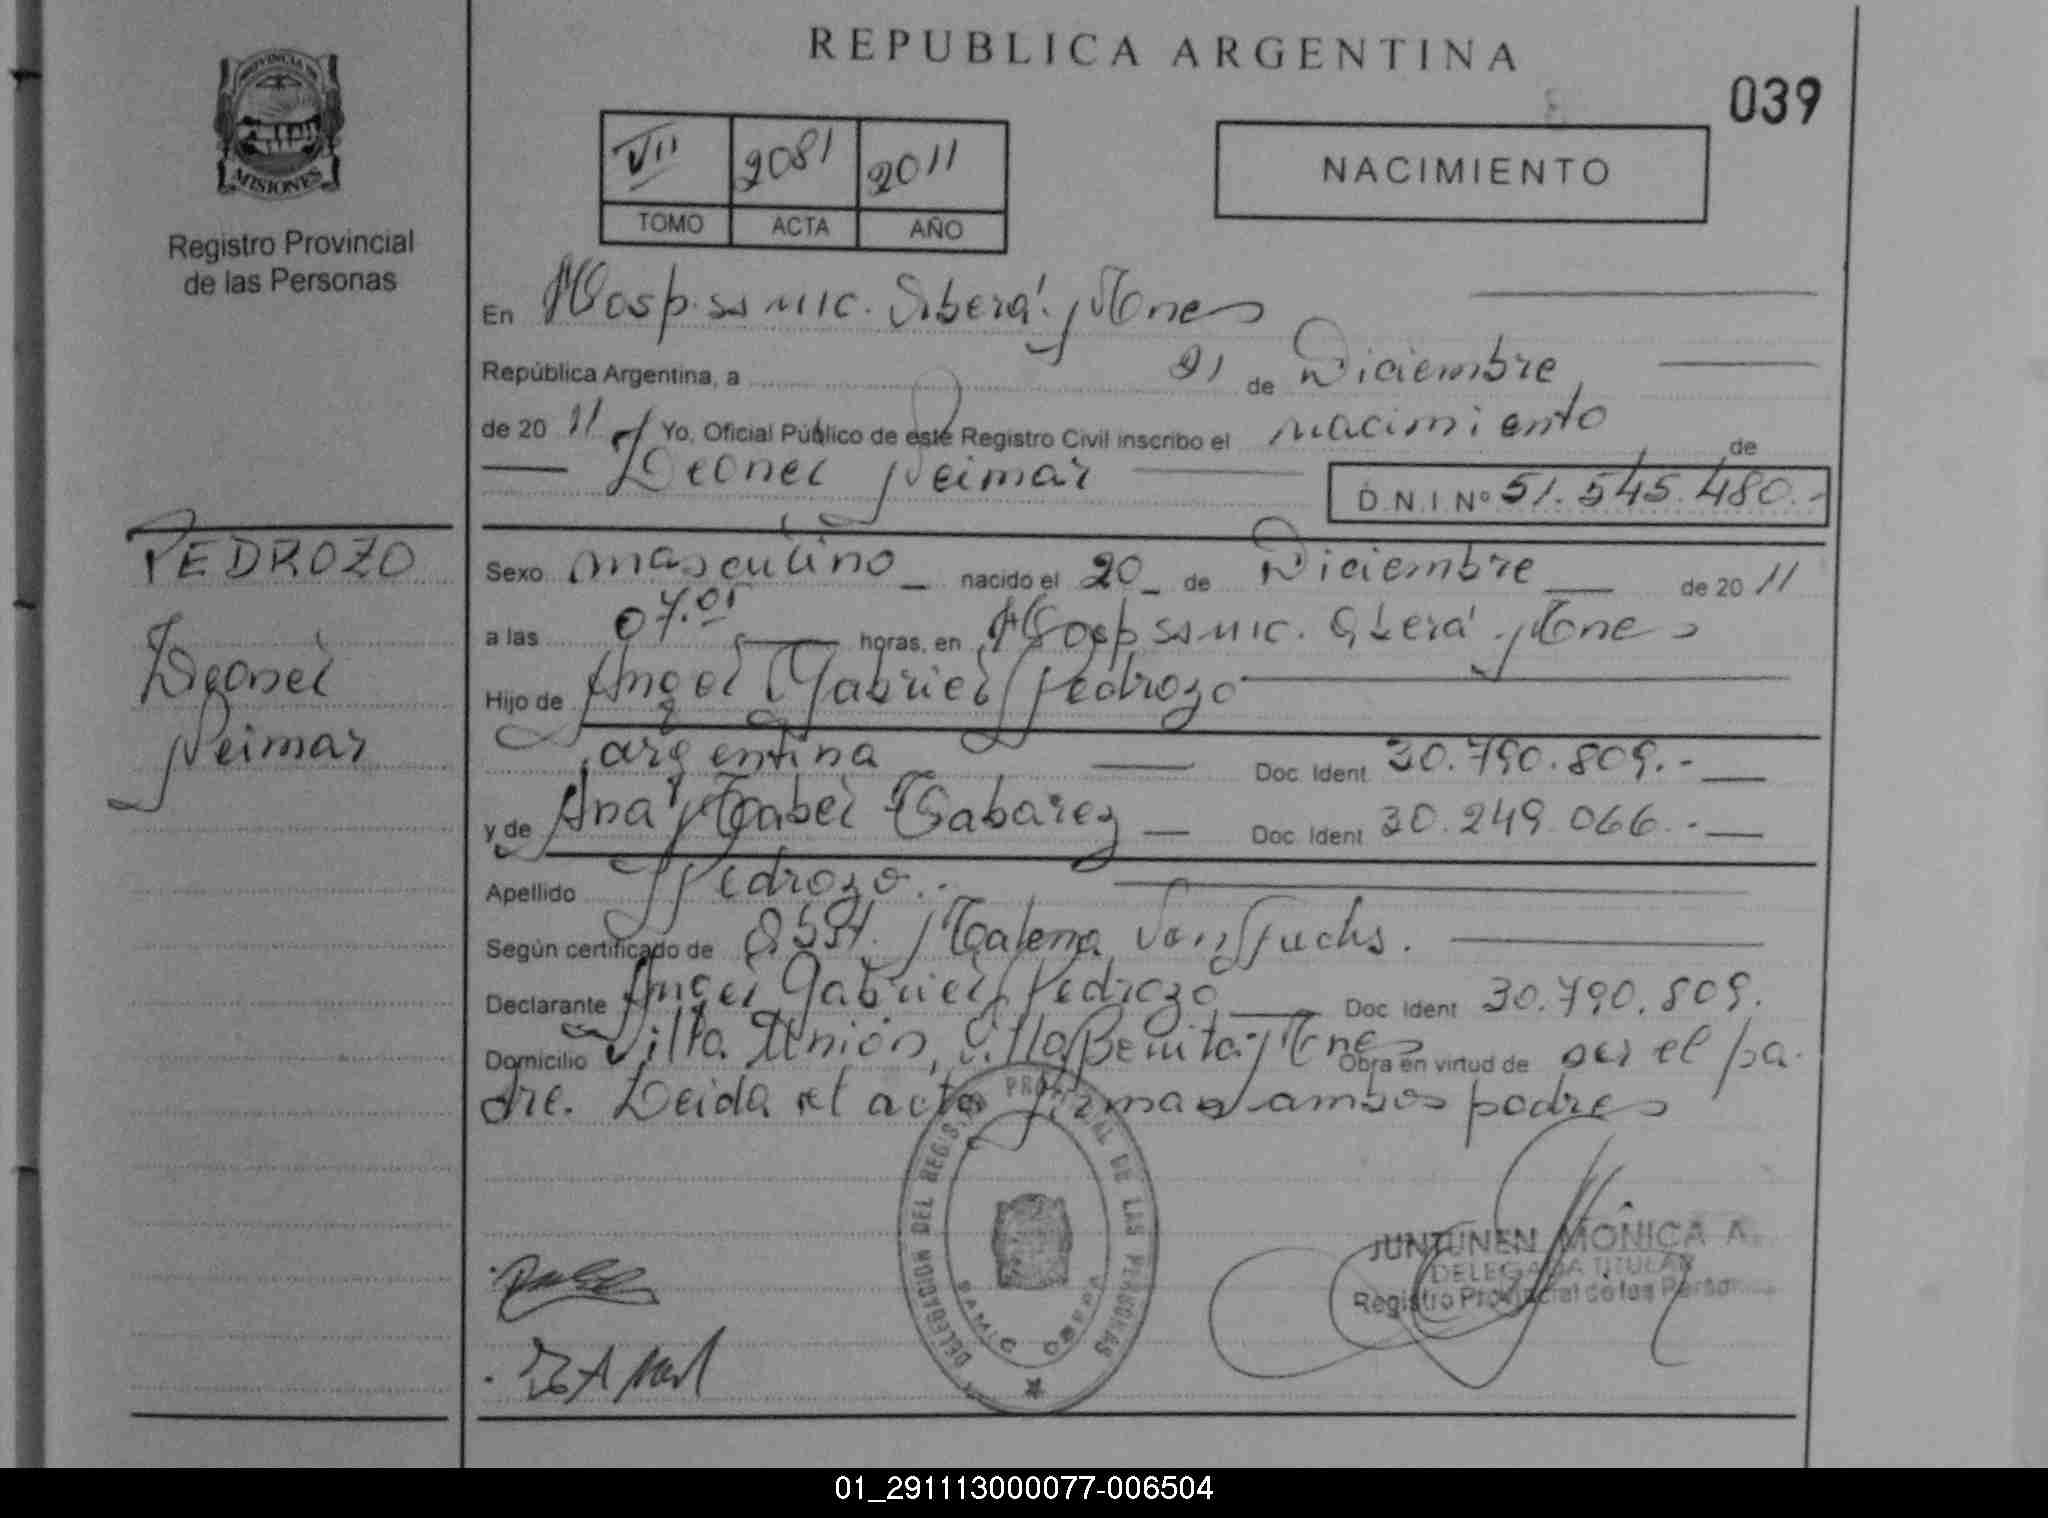 REPUBLICA ARGENTINA
039
PROVINCIA DE
MISIONES
Registro Provincial
de las Personas
VII 2081 2011
TOMO ACTA AÑO
NACIMIENTO
En Hosp. ss mic. Oberá. Mnes
República Argentina, a 21 de Diciembre
de 20 11 Yo, Oficial Público de este Registro Civil inscribo el nacimiento de
Leonel Neimar
D.N.I Nº 51.545.480.-
PEDROZO
Leonel
Neimar
Sexo masculino nacido el 20 de Diciembre de 20 11
a las 07.05 horas, en Hosp ss mic. Oberá. Mnes
Hijo de Angel Gabriel Pedrozo
argentina Doc. Ident 30.790.809.-
y de Ana Mabel Tabarez Doc. Ident 30.249.066.-
Apellido Pedrozo.-
Según certificado de Obst. Malena Von Fuchs.
Declarante Angel Gabriel Pedrozo Doc Ident 30.790.809.
Domicilio Villa Unión, Villa Bonita. Mnes Obra en virtud de ser el pa-
dre. Leida el acta firman ambos padres
DELEGACION DEL REGISTRO PROVINCIAL DE LAS PERSONAS
SAMIC OBERA
JUNTUNEN MONICA A.
DELEGADA TITULAR
Registro Provincial de las Personas
01_291113000077-006504